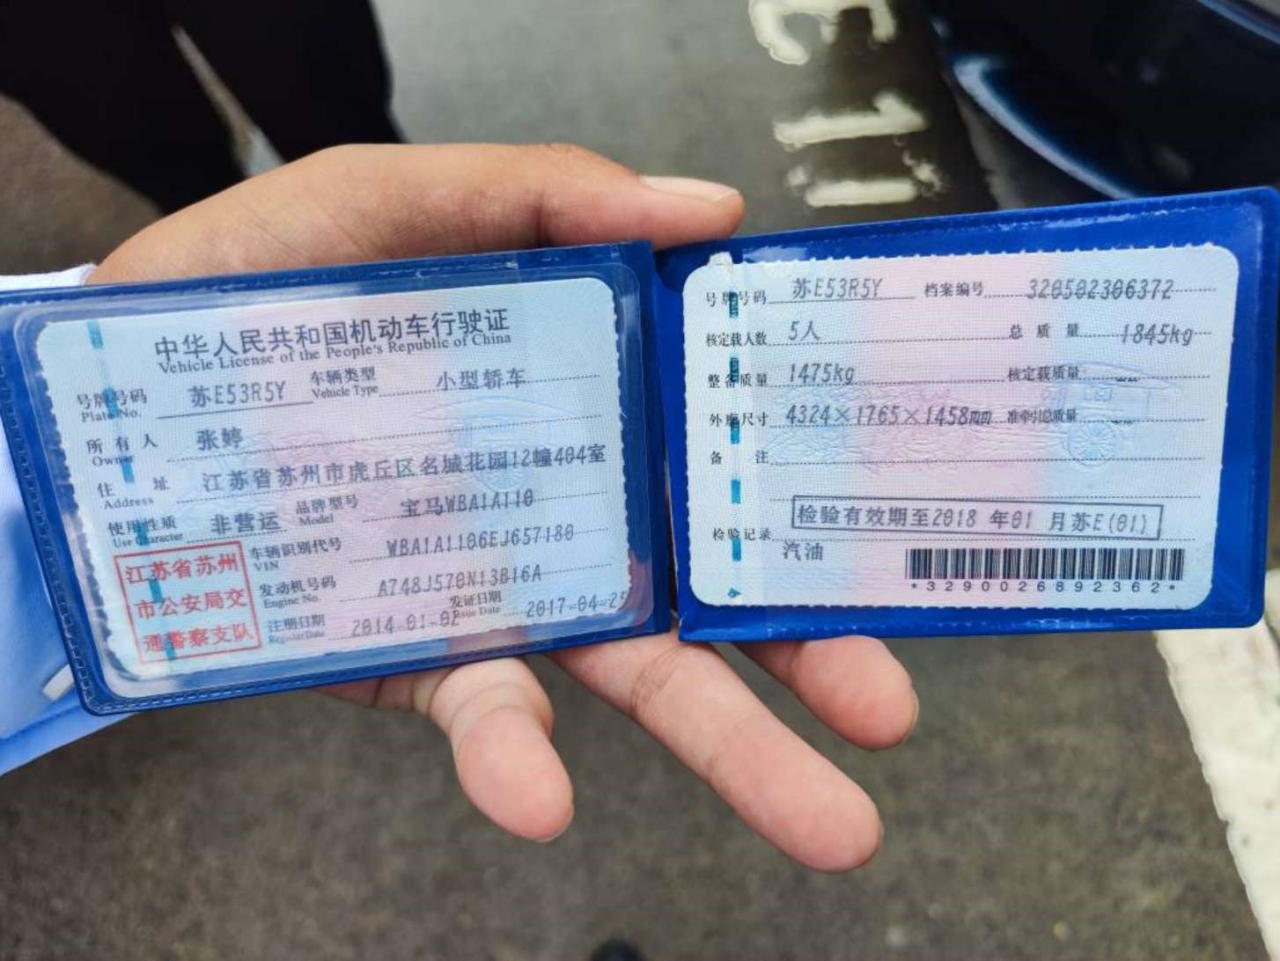 中华人民共和国机动车行驶证
Vehicle License of the People's Republic of China
号牌号码 苏E53R5Y 车辆类型 小型轿车
Plate No. Vehicle Type
所有人 张婷
Owner
住址 江苏省苏州市虎丘区名城花园12幢404室
Address
使用性质 非营运 品牌型号 宝马WBA1A110
Use Character Model
江苏省苏州
市公安局交
通警察支队
车辆识别代号 WBA1A1106EJ657180
VIN
发动机号码 A748J570N13B16A
Engine No.
注册日期 2014-01-02 发证日期 2017-04-25
Register Date Issue Date
号牌号码 苏E53R5Y 档案编号 320502306372
核定载人数 5人 总质量 1845kg
整备质量 1475kg 核定载质量 --
外廓尺寸 4324×1765×1458mm 准牵引总质量
备注
检验有效期至2018 年01 月苏E(01)
检验记录
汽油
*3290026892362*